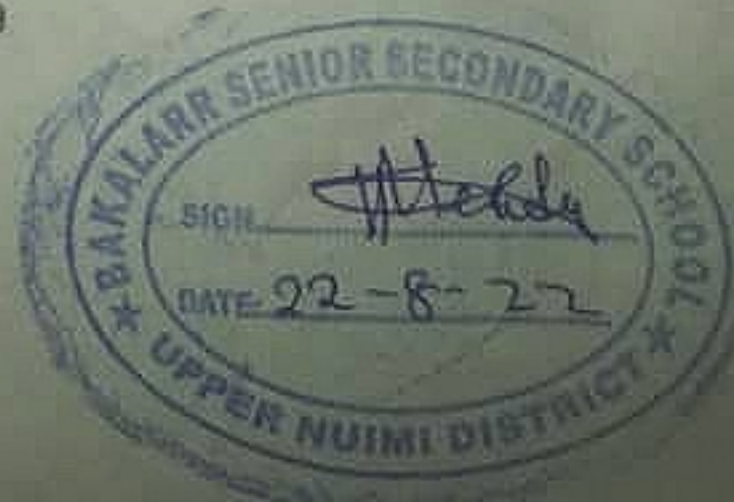 BAKALARR SENIOR SECONDARY SCHOOL
SIGN
DATE 22-8-22
UPPER NUIMI DISTRICT